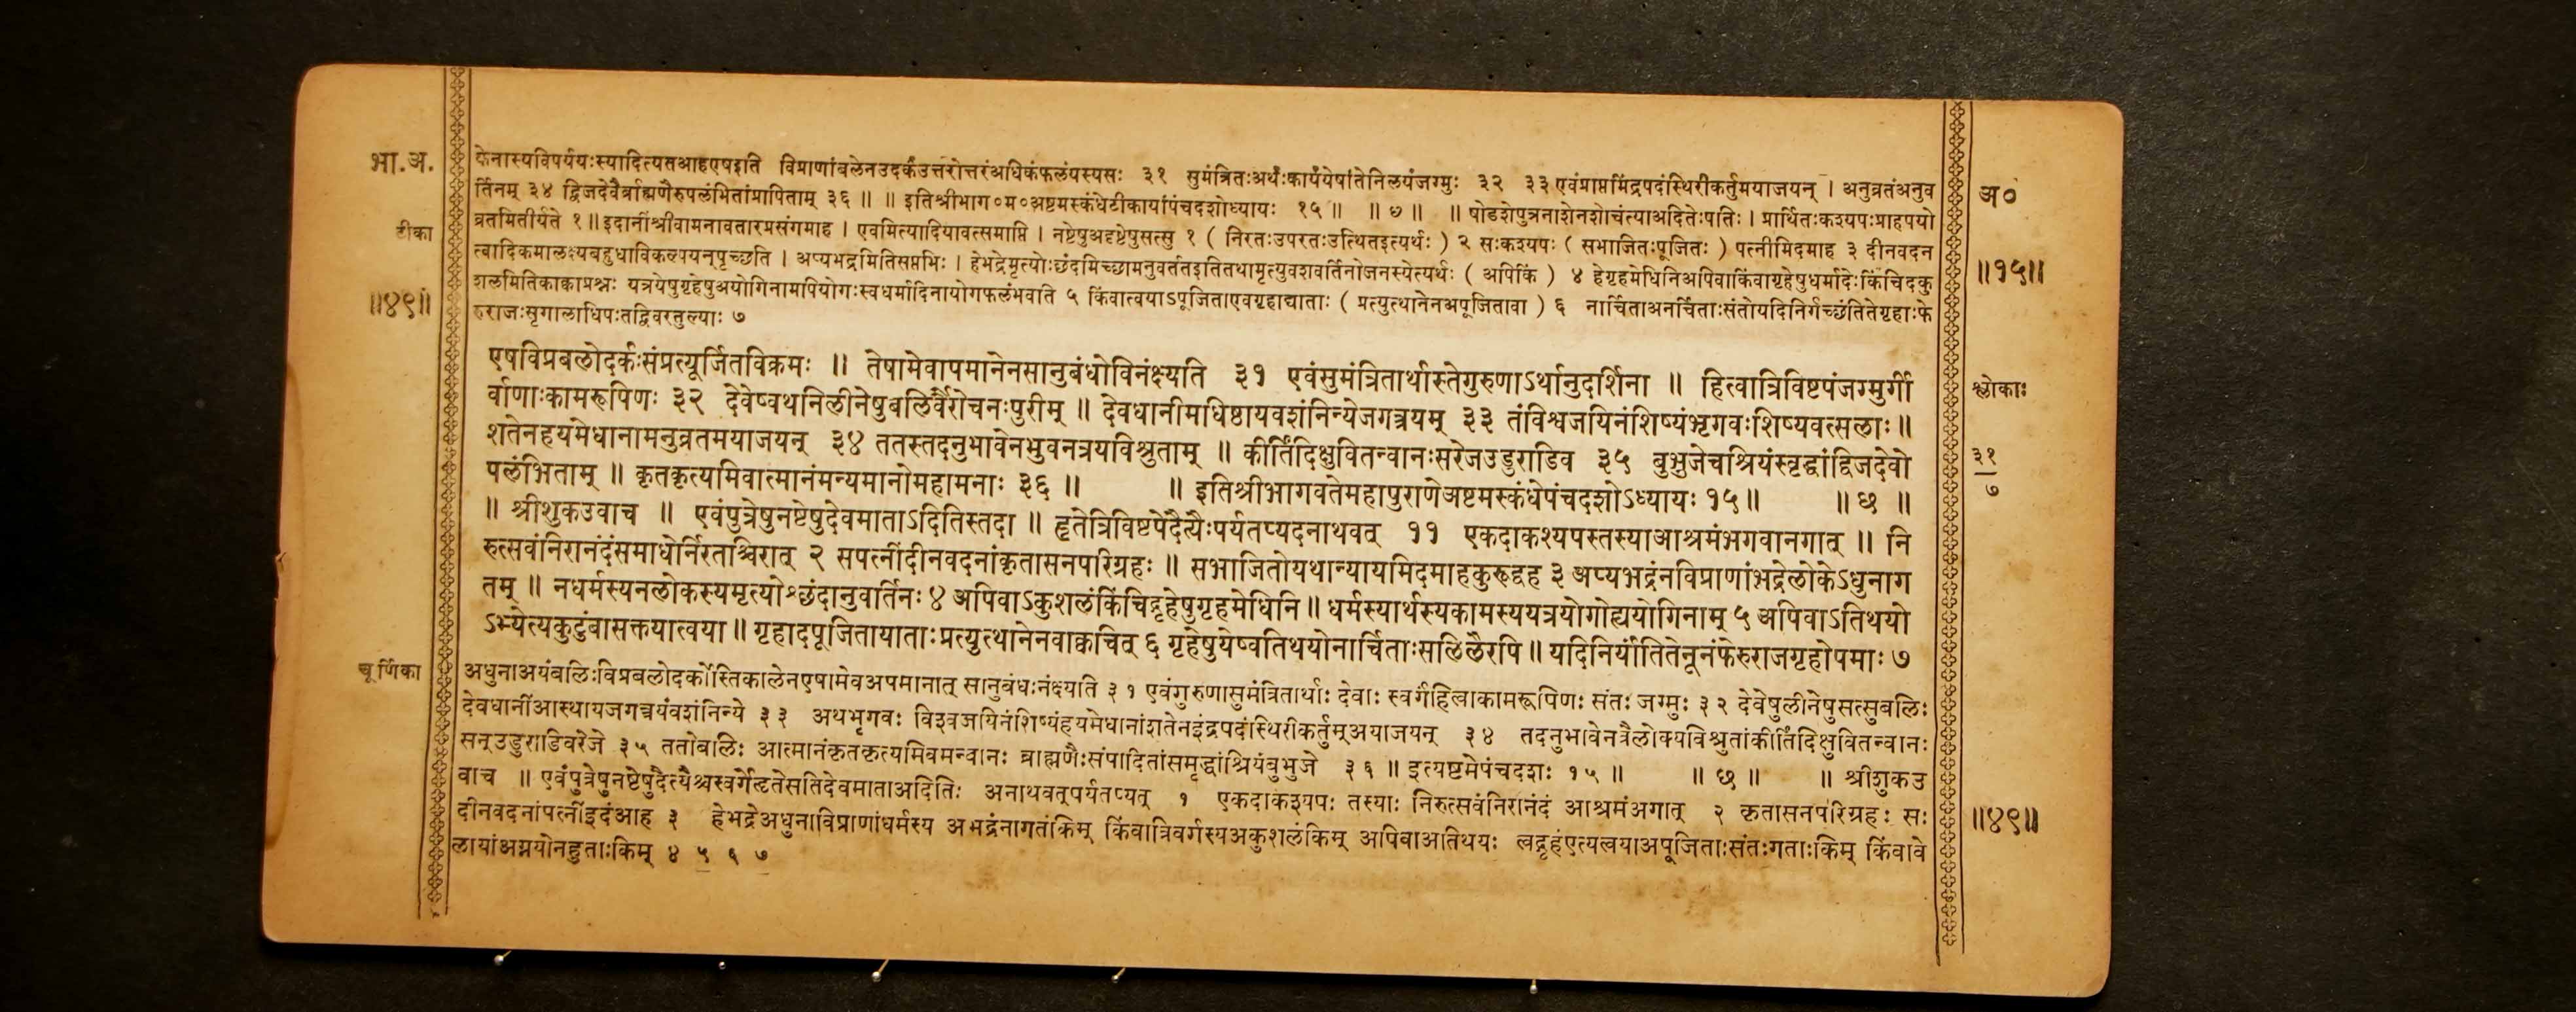 भा.अ.
टीका
॥४९॥
केनास्यविपर्ययःस्यादित्यतआहएषइति विप्राणांबलेनउदर्कउत्तरोत्तरंअधिकंफलंयस्यसः ३१ सुमंत्रितःअर्थःकार्यंयेषांतेनिलयंजग्मुः ३२ ३३ एवंप्राप्तमिंद्रपदंस्थिरीकर्तुमयाजयन् । अनुव्रतंअनुव
र्तिनम् ३४ द्विजदेवैर्ब्राह्मणैरुपलंभितांप्रापिताम् ३६ ॥ ॥ इतिश्रीभाग०म०अष्टमस्कंधेटीकायांपंचदशोध्यायः १५ ॥ ॥ ७ ॥ ॥ षोडशेपुत्रनाशेनशोचंत्याअदितेःपतिः । प्रार्थितःकश्यपःप्राहपयो
व्रतमितीर्यते १ ॥ इदानींश्रीवामनावतारप्रसंगमाह । एवमित्यादियावत्समाप्ति । नष्टेषुअदृष्टेषुसत्सु १ ( निरतःउपरतःउत्थितइत्यर्थः ) २ सःकश्यपः ( सभाजितःपूजितः ) पत्नीमिदमाह ३ दीनवदन
त्वादिकमालक्ष्यबहुधाविकल्पयन्पृच्छति । अप्यभद्रमितिसप्तभिः । हेभद्रेमृत्योःछंदमिच्छामनुवर्ततइतितथामृत्युवशवर्तिनोजनस्येत्यर्थः ( अपिकिं ) ४ हेगृहमेधिनिअपिवाकिंवागृहेषुधर्मादेःकिंचिदकु
शलमितिकाकाप्रश्नः यत्रयेषुगृहेषुअयोगिनामपियोगःस्वधर्मादिनायोगफलंभवाति ५ किंवात्वयाऽपूजिताएवगृहाद्याताः ( प्रत्युत्थानेनअपूजितावा ) ६ नार्चिताअनर्चिताःसंतोयदिनिर्गच्छंतितेगृहाःफे
रुराजःसृगालाधिपःतद्विवरतुल्याः ७
एषविप्रबलोदर्कःसंप्रत्यूर्जितविक्रमः ॥ तेषामेवापमानेनसानुबंधोविनंक्ष्यति ३१ एवंसुमंत्रितार्थास्तेगुरुणाऽर्थानुदर्शिना ॥ हित्वात्रिविष्टपंजग्मुर्गी
र्वाणाःकामरूपिणः ३२ देवेष्वथनिलीनेषुबलिर्वैरोचनःपुरीम् ॥ देवधानीमधिष्ठायवशंनिन्येजगत्त्रयम् ३३ तंविश्वजयिनंशिष्यंभृगवःशिष्यवत्सलाः ॥
शतेनहयमेधानामनुव्रतमयाजयन् ३४ ततस्तदनुभावेनभुवनत्रयविश्रुताम् ॥ कीर्तिंदिक्षुवितन्वानःसरेजउडुराडिव ३५ बुभुजेचश्रियंस्वृद्धांद्विजदेवो
पलंभिताम् ॥ कृतकृत्यमिवात्मानंमन्यमानोमहामनाः ३६ ॥ ॥ इतिश्रीभागवतेमहापुराणेअष्टमस्कंधेपंचदशोऽध्यायः १५ ॥ ॥ छ ॥
॥ श्रीशुकउवाच ॥ एवंपुत्रेषुनष्टेषुदेवमाताऽदितिस्तदा ॥ हृतेत्रिविष्टपेदैत्यैःपर्यतप्यदनाथवत् ११ एकदाकश्यपस्तस्याआश्रमंभगवानगात् ॥ नि
रुत्सवंनिरानंदंसमाधोर्निरताश्चिरात् २ सपत्नींदीनवदनांकृतासनपरिग्रहः ॥ सभाजितोयथान्यायमिदमाहकुरूद्वह ३ अप्यभद्रंनविप्राणांभद्रेलोकेऽधुनाग
तम् ॥ नधर्मस्यनलोकस्यमृत्योश्छंदानुवर्तिनः ४ अपिवाऽकुशलंकिंचिद्गृहेषुगृहमेधिनि ॥ धर्मस्यार्थस्यकामस्ययत्रयोगोह्ययोगिनाम् ५ अपिवाऽतिथयो
ऽभ्येत्यकुटुंबासक्तयात्वया ॥ गृहादपूजितायाताःप्रत्युत्थानेनवाक्वचित् ६ गृहेषुयेष्वतिथयोनार्चिताःसलिलैरपि ॥ यदिनिर्यांतितेनूनंफेरुराजगृहोपमाः ७
चूर्णिका
अधुनाअयंबलिःविप्रबलोदर्कोस्तिकालेनएषामेवअपमानात् सानुबंधःनंक्ष्यति ३१ एवंगुरुणासुमंत्रितार्थाः देवाः स्वर्गंहित्वाकामरूपिणः संतः जग्मुः ३२ देवेषुलीनेषुसत्सुबलिः
देवधानींआस्थायजगत्त्रयंवशंनिन्ये ३३ अथभृगवः विश्वजयिनंशिष्यंहयमेधानांशतेनइंद्रपदंस्थिरीकर्तुम्अयाजयन् ३४ तदनुभावेनत्रैलोक्यविश्रुतांकीर्तिंदिक्षुवितन्वानः
सन्उडुराडिवरेजे ३५ ततोबलिः आत्मानंकृतकृत्यमिवमन्वानः ब्राह्मणैःसंपादितांसमृद्धांश्रियंबुभुजे ३६ ॥ इत्यष्टमेपंचदशः १५ ॥ ॥ छ ॥ ॥ श्रीशुकउ
वाच ॥ एवंपुत्रेषुनष्टेषुदैत्यैश्चस्वर्गेहृतेसतिदेवमाताअदितिः अनाथवत्पर्यतप्यत् १ एकदाकश्यपः तस्याः निरुत्सवंनिरानंदं आश्रमंअगात् २ कृतासनपरिग्रहः सः
दीनवदनांपत्नींइदंआह ३ हेभद्रेअधुनाविप्राणांधर्मस्य अभद्रंनागतंकिम् किंवात्रिवर्गस्यअकुशलंकिम् अपिवाअतिथयः त्वद्गृहंएत्यत्वयाअपूजिताःसंतःगताःकिम् किंवावे
लायांअग्नयोनहुताःकिम् ४ ५ ६ ७
अ०
॥१५॥
श्लोकाः
३१
७
॥४९॥